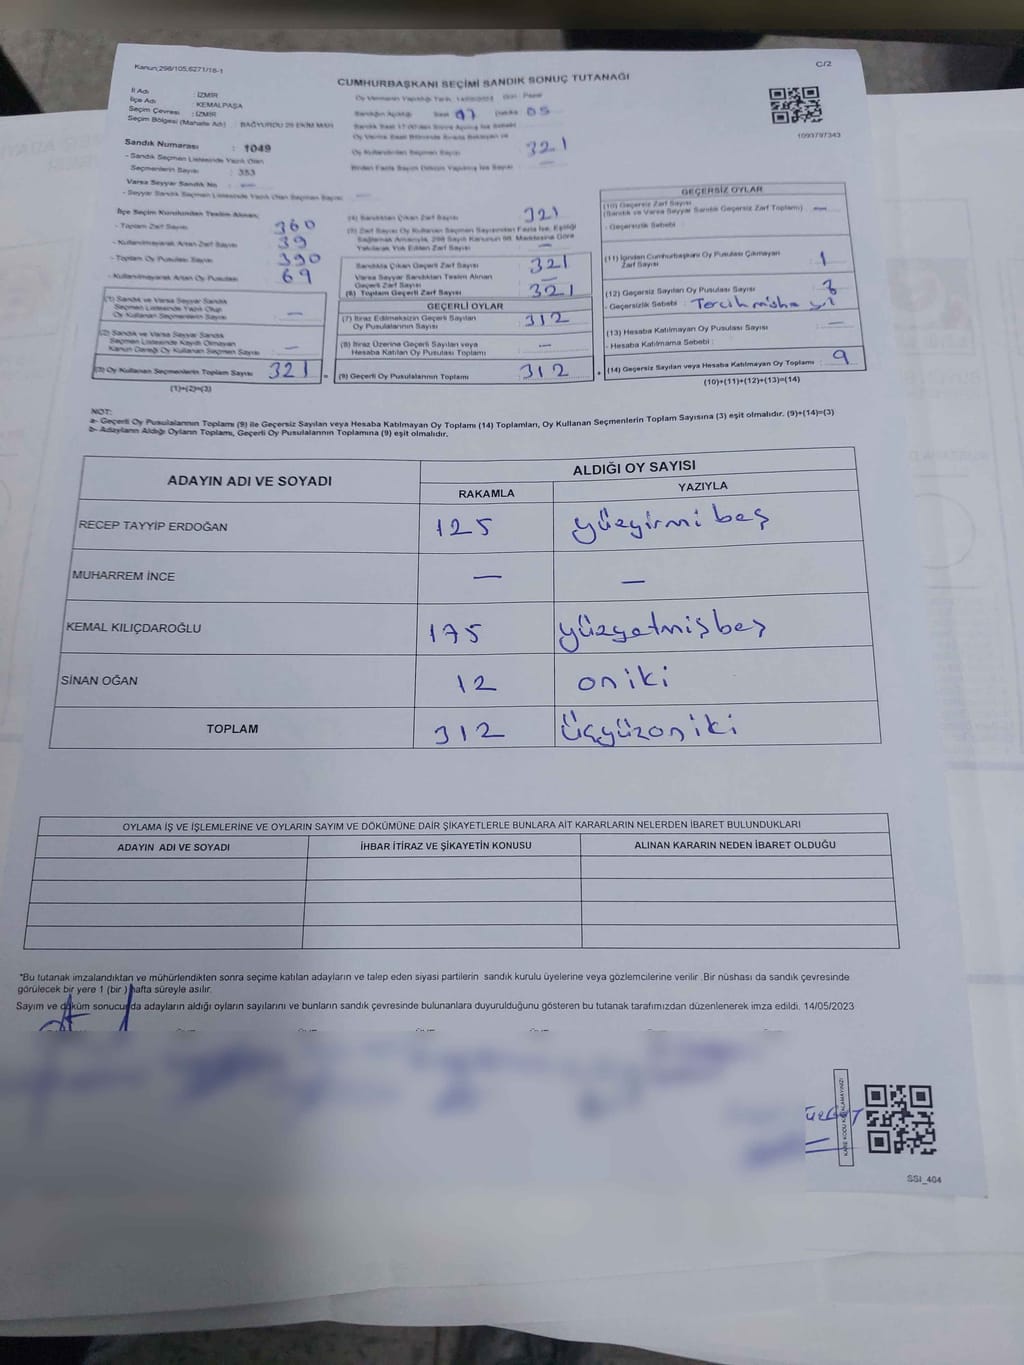 Kanun:298/105,6271/18-1
C/2
CUMHURBAŞKANI SEÇİMİ SANDIK SONUÇ TUTANAĞI
İl Adı : İZMİR
İlçe Adı : KEMALPAŞA
Seçim Çevresi : İZMİR
Seçim Bölgesi (Mahalle Adı) : BAĞYURDU 29 EKİM MAH
Oy Vermenin Yapıldığı Tarih: 14/05/2023 Gün: Pazar
Sandığın Açıldığı Saat 17 Dakika 05
1093797343
Sandık Numarası : 1049
- Sandık Seçmen Listesinde Yazılı Olan
Seçmenlerin Sayısı : 353
Varsa Seyyar Sandık No —
- Seyyar Sandık Seçmen Listesinde Yazılı Olan Seçmen Sayısı —
Oy Kullandırılan Seçmen Sayısı 321
İlçe Seçim Kurulundan Teslim Alınan;
- Toplam Zarf Sayısı 360
- Kullanılmayarak Artan Zarf Sayısı 39
- Toplam Oy Pusulası Sayısı 390
- Kullanılmayarak Artan Oy Pusulası 69
(1) Sandık ve Varsa Seyyar Sandık
Seçmen Listesinde Yazılı Olup
Oy Kullanan Seçmenlerin Sayısı —
(2) Sandık ve Varsa Seyyar Sandık
Seçmen Listesinde Kaydı Olmayan
Kanun Gereği Oy Kullanan Seçmen Sayısı —
(3) Oy Kullanan Seçmenlerin Toplam Sayısı 321
(1)+(2)=(3)
(4) Sandıktan Çıkan Zarf Sayısı 321
(5) Zarf Sayısı Oy Kullanan Seçmen Sayısından Fazla İse, Eşitliği
Sağlamak Amacıyla, 298 Sayılı Kanunun 98. Maddesine Göre
Yakılarak Yok Edilen Zarf Sayısı —
Sandıkta Çıkan Geçerli Zarf Sayısı 321
Varsa Seyyar Sandıktan Teslim Alınan
Geçerli Zarf Sayısı —
(6) Toplam Geçerli Zarf Sayısı 321
GEÇERLİ OYLAR
(7) İtiraz Edilmeksizin Geçerli Sayılan
Oy Pusulalarının Sayısı 312
(8) İtiraz Üzerine Geçerli Sayılan veya
Hesaba Katılan Oy Pusulası Toplamı —
(9) Geçerli Oy Pusulalarının Toplamı 312
GEÇERSİZ OYLAR
(10) Geçersiz Zarf Sayısı
(Sandık ve Varsa Seyyar Sandık Geçersiz Zarf Toplamı) —
- Geçersizlik Sebebi :
(11) İçinden Cumhurbaşkanı Oy Pusulası Çıkmayan
Zarf Sayısı 1
(12) Geçersiz Sayılan Oy Pusulası Sayısı 8
- Geçersizlik Sebebi :
(13) Hesaba Katılmayan Oy Pusulası Sayısı —
- Hesaba Katılmama Sebebi :
(14) Geçersiz Sayılan veya Hesaba Katılmayan Oy Toplamı : 9
(10)+(11)+(12)+(13)=(14)
NOT:
a- Geçerli Oy Pusulalarının Toplamı (9) ile Geçersiz Sayılan veya Hesaba Katılmayan Oy Toplamı (14) Toplamları, Oy Kullanan Seçmenlerin Toplam Sayısına (3) eşit olmalıdır. (9)+(14)=(3)
b- Adayların Aldığı Oyların Toplamı, Geçerli Oy Pusulalarının Toplamına (9) eşit olmalıdır.
ADAYIN ADI VE SOYADI
ALDIĞI OY SAYISI
RAKAMLA YAZIYLA
RECEP TAYYİP ERDOĞAN 125 yüzyirmi beş
MUHARREM İNCE — —
KEMAL KILIÇDAROĞLU 175 yüzyetmişbeş
SİNAN OĞAN 12 oniki
TOPLAM 312 Üçyüzoniki
OYLAMA İŞ VE İŞLEMLERİNE VE OYLARIN SAYIM VE DÖKÜMÜNE DAİR ŞİKAYETLERLE BUNLARA AİT KARARLARIN NELERDEN İBARET BULUNDUKLARI
ADAYIN ADI VE SOYADI İHBAR İTİRAZ VE ŞİKAYETİN KONUSU ALINAN KARARIN NEDEN İBARET OLDUĞU
*Bu tutanak imzalandıktan ve mühürlendikten sonra seçime katılan adayların ve talep eden siyasi partilerin sandık kurulu üyelerine veya gözlemcilerine verilir .Bir nüshası da sandık çevresinde
görülecek bir yere 1 (bir ) hafta süreyle asılır.
Sayım ve döküm sonucunda adayların aldığı oyların sayılarını ve bunların sandık çevresinde bulunanlara duyurulduğunu gösteren bu tutanak tarafımızdan düzenlenerek imza edildi. 14/05/2023
SSI_404